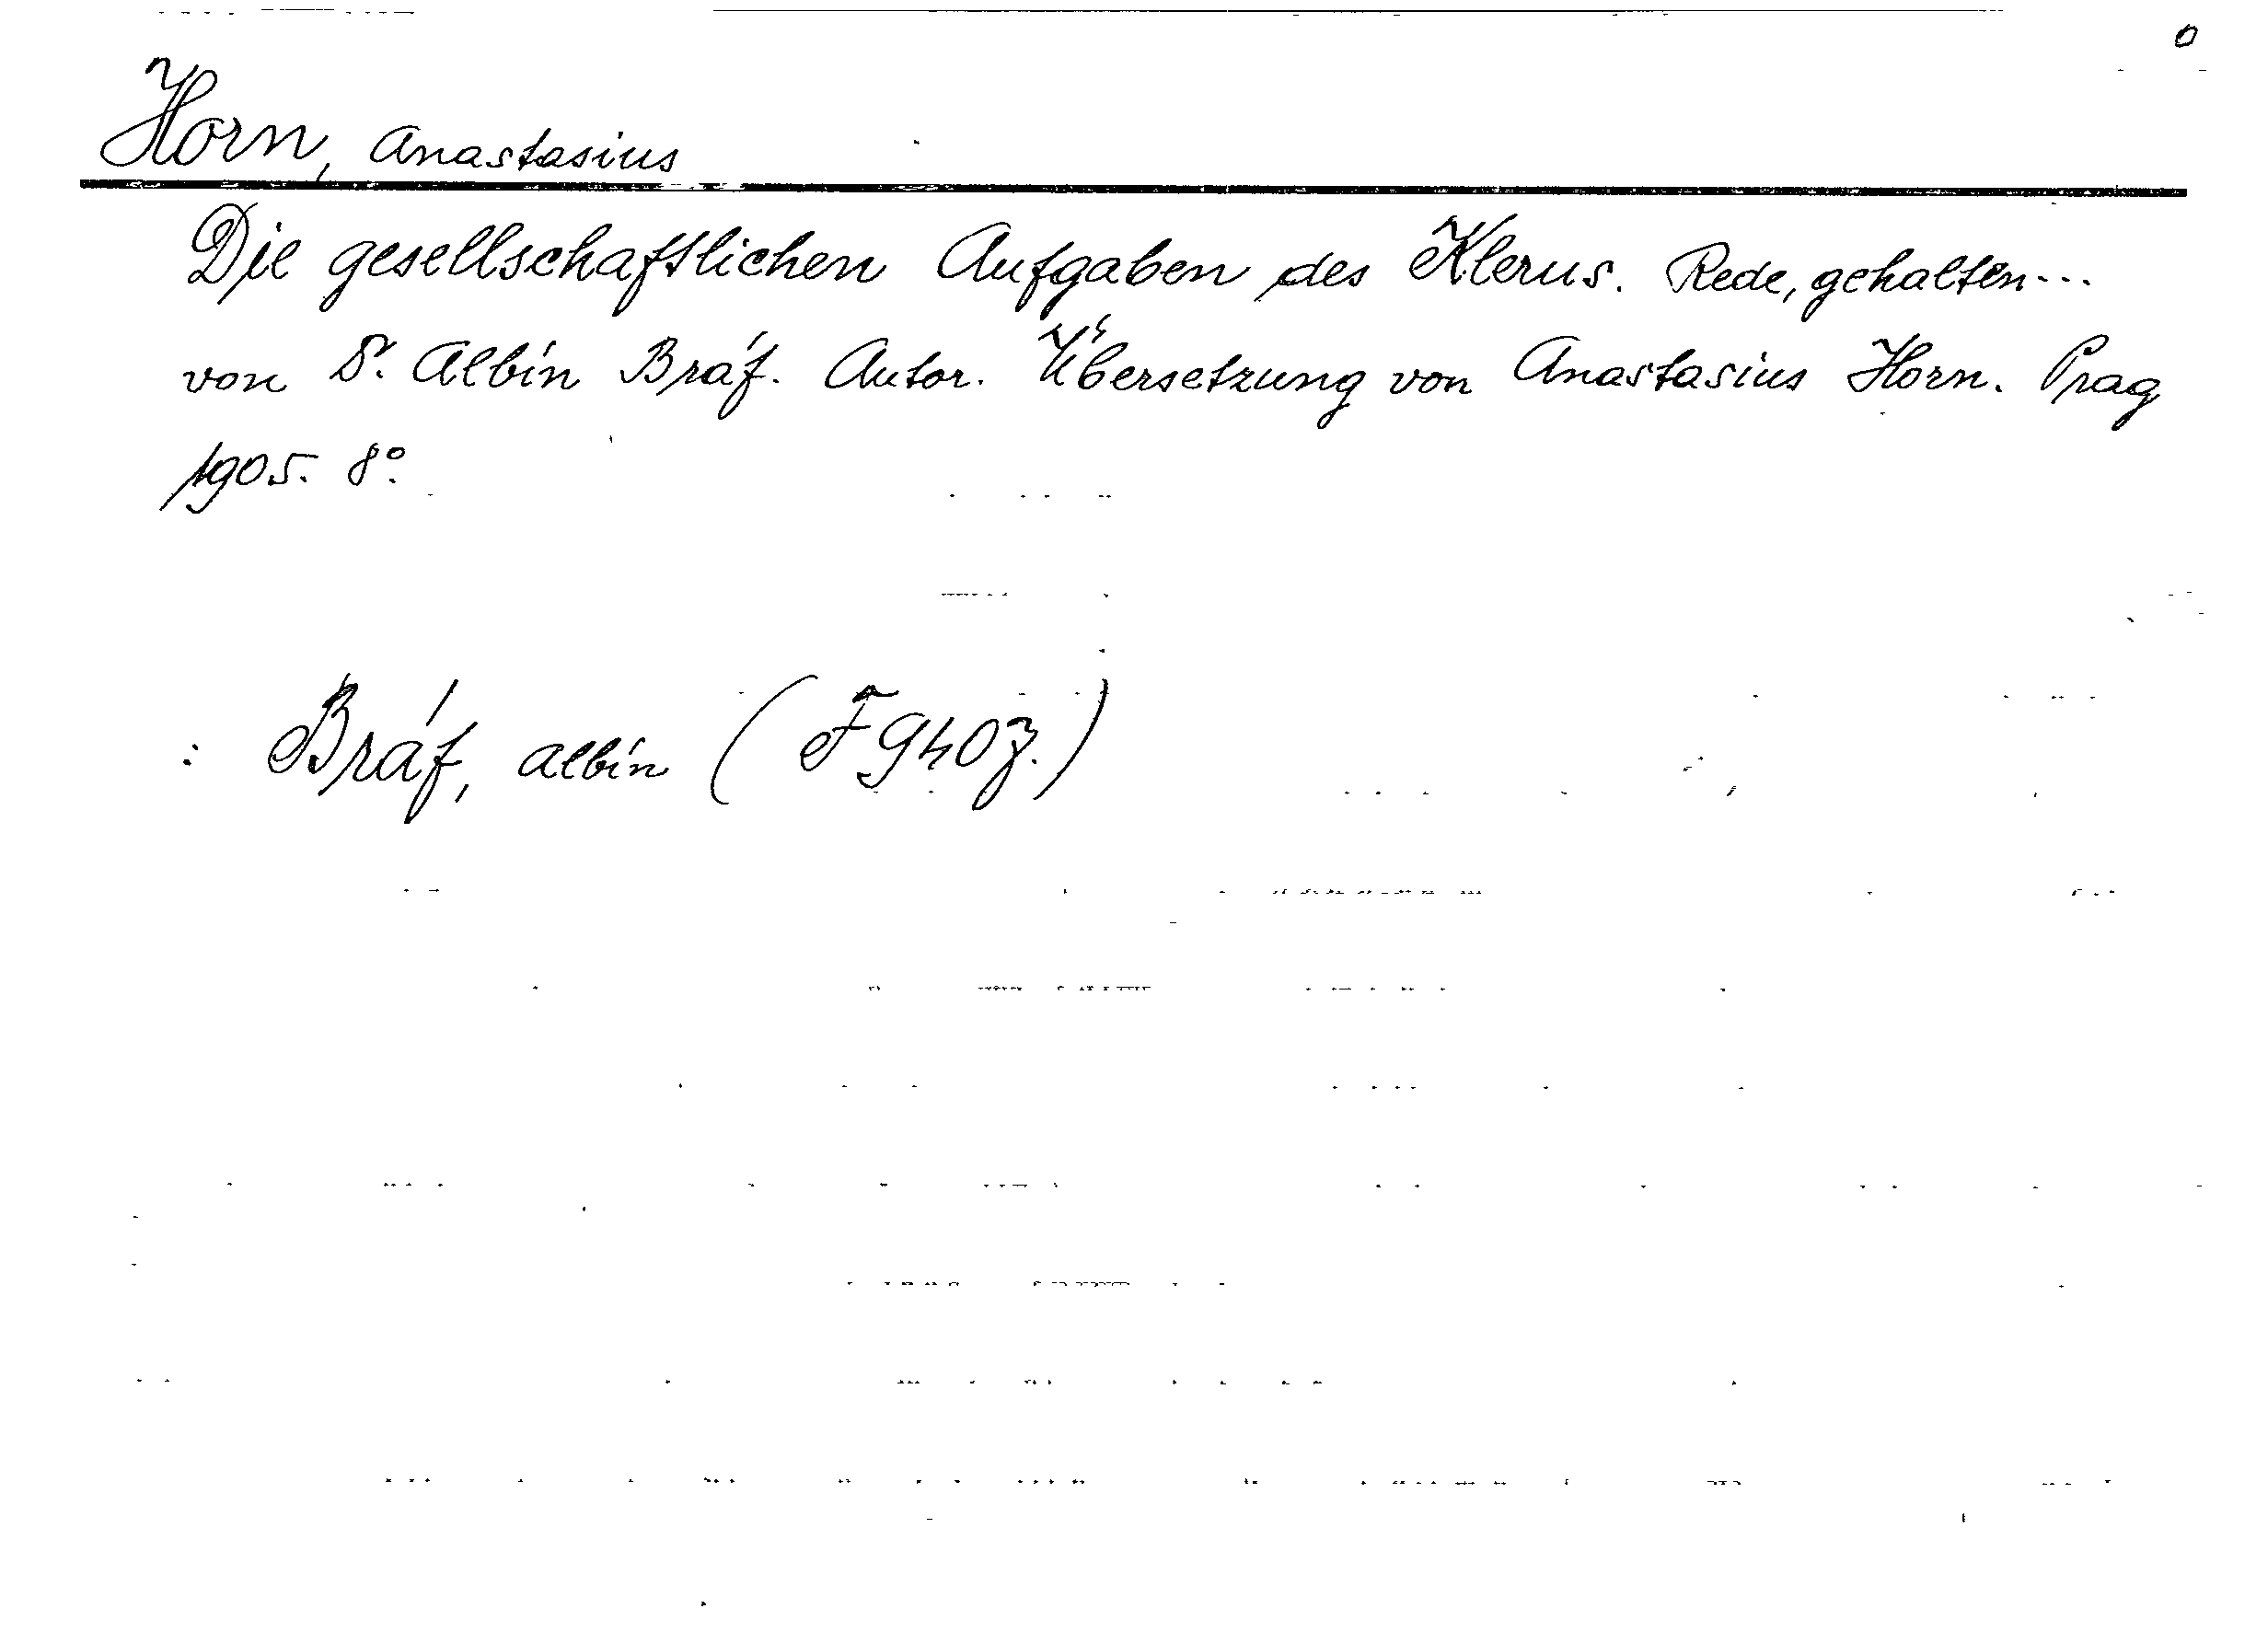 0
Horn, Anastasius
Die gesellschaftlichen Aufgaben des Klerus. Rede, gehalten...
von Dr. Albín Bráf. Autor. Übersetzung von Anastasius Horn. Prag
1905. 8°.
: Bráf, Albín (F 940 z.)